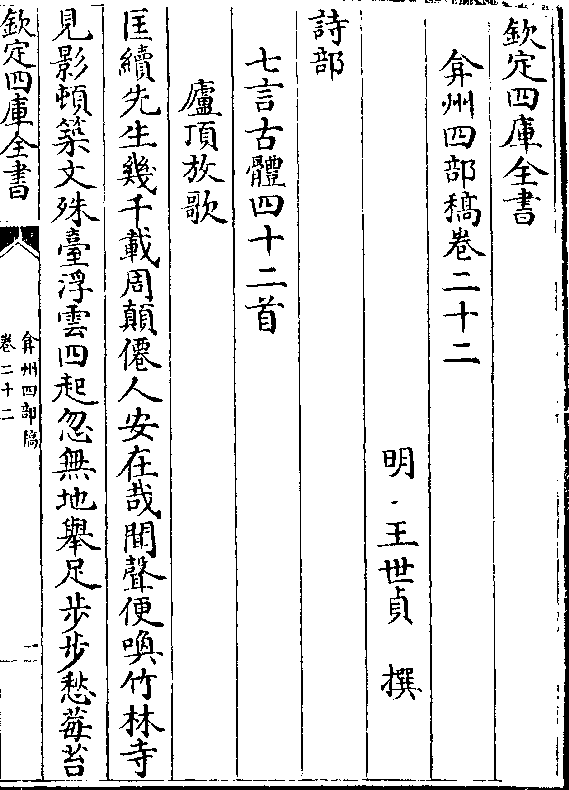 欽定四庫全書
弇州四部稿卷二十二
明 王世貞 撰
詩部
七言古體四十二首
廬頂放歌
匡續先生幾千載周顛僊人安在哉聞聲便喚竹林寺
見影頓築文殊臺浮雲四起忽無地舉足步步愁莓苔
欽定四庫全書
弇州四部稿
卷二十二
一